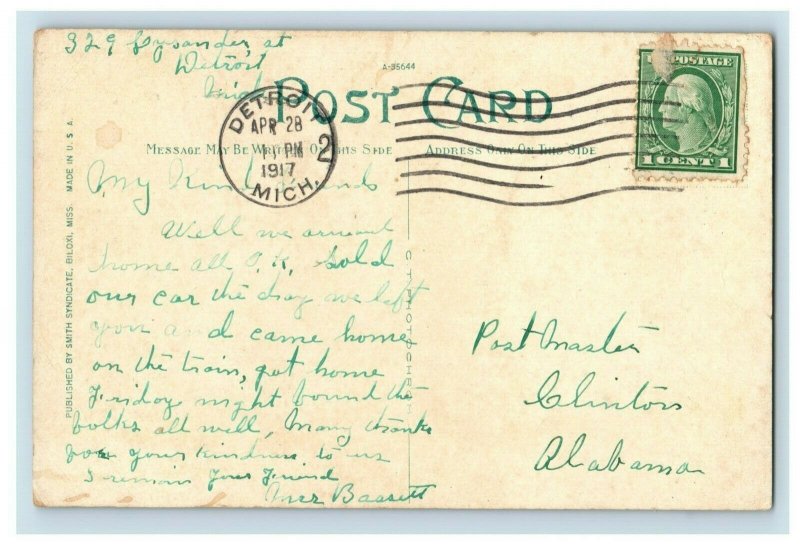 329 Lysander, st
Detroit
Mich
A-35644
POST CARD
MESSAGE MAY BE WRITTEN ON THIS SIDE
ADDRESS ONLY ON THIS SIDE
U.S. POSTAGE
1 CENT 1
DETROIT
APR 28
PM
1917
MICH.
2
My Kind Friends
Well we arrived
home all O.K. Sold
our car the day we left
you and came home
on the train, got home
Friday night found the
folks all well, Many thanks
for your kindness to us
I remain Your Friend
Bassett
Post Master
Clinton
Alabama
PUBLISHED BY SMITH SYNDICATE, BILOXI, MISS. MADE IN U.S.A.
C T PHOTOCHROM